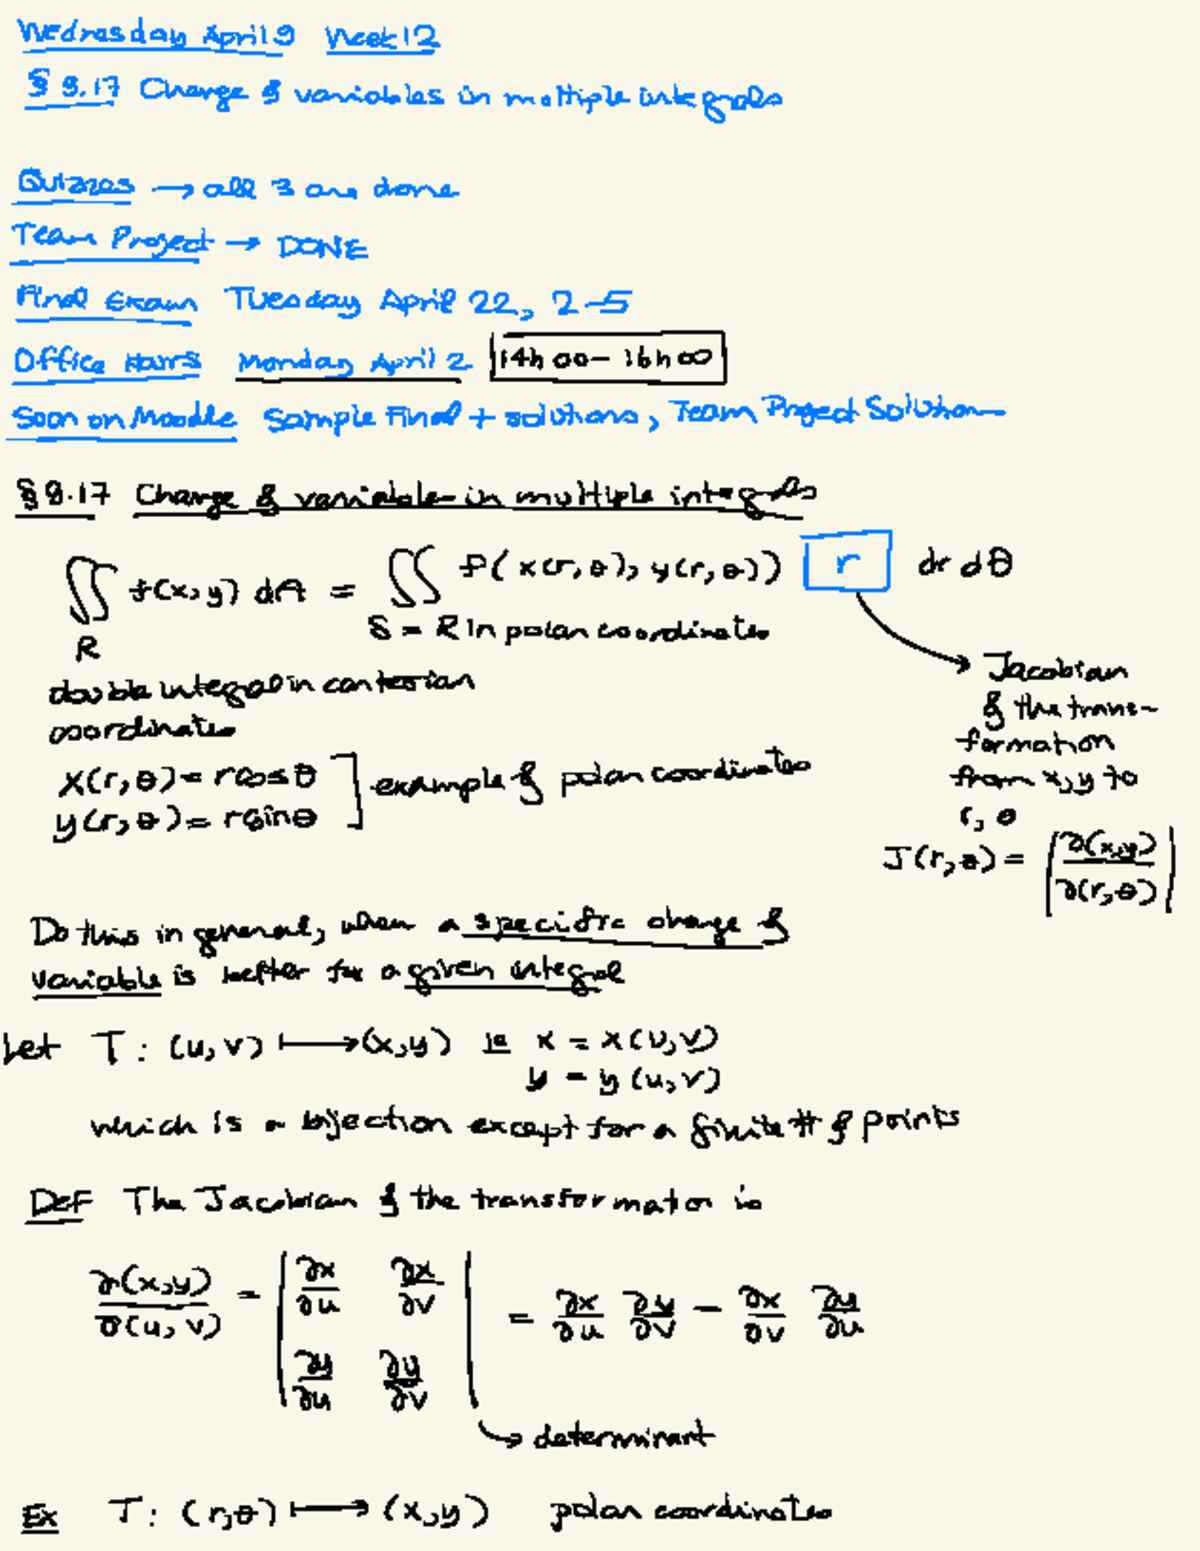 Wednesday April 9 Week 12
§ 9.17 Change of variables in multiple integrals
Quizzes → all 3 are done
Team Project → DONE
Final Exam Tuesday April 22, 2-5
Office Hours Monday April 2 14h00-16h00
Soon on Moodle Sample Final + solutions, Team Project Solution
§9.17 Change of variables in multiple integrals
∬ f(x,y) dA = ∬ f(x(r,θ), y(r,θ)) r dr dθ
R S = R in polar coordinates
double integral in cartesian
coordinates
x(r,θ) = r cos θ
y(r,θ) = r sin θ
example of polar coordinates
→ Jacobian
of the trans-
formation
from x,y to
r, θ
J(r,θ) = |∂(x,y)/∂(r,θ)|
Do this in general, when a specific change of
variable is better for a given integral
Let T: (u,v) ⟼ (x,y) ie x = x(u,v)
y = y(u,v)
which is a bijection except for a finite # of points
DEF The Jacobian of the transformation is
∂(x,y)/∂(u,v) = | ∂x/∂u ∂x/∂v | = ∂x/∂u ∂y/∂v - ∂x/∂v ∂y/∂u
| ∂y/∂u ∂y/∂v |
→ determinant
Ex T: (r,θ) ⟼ (x,y) polar coordinates